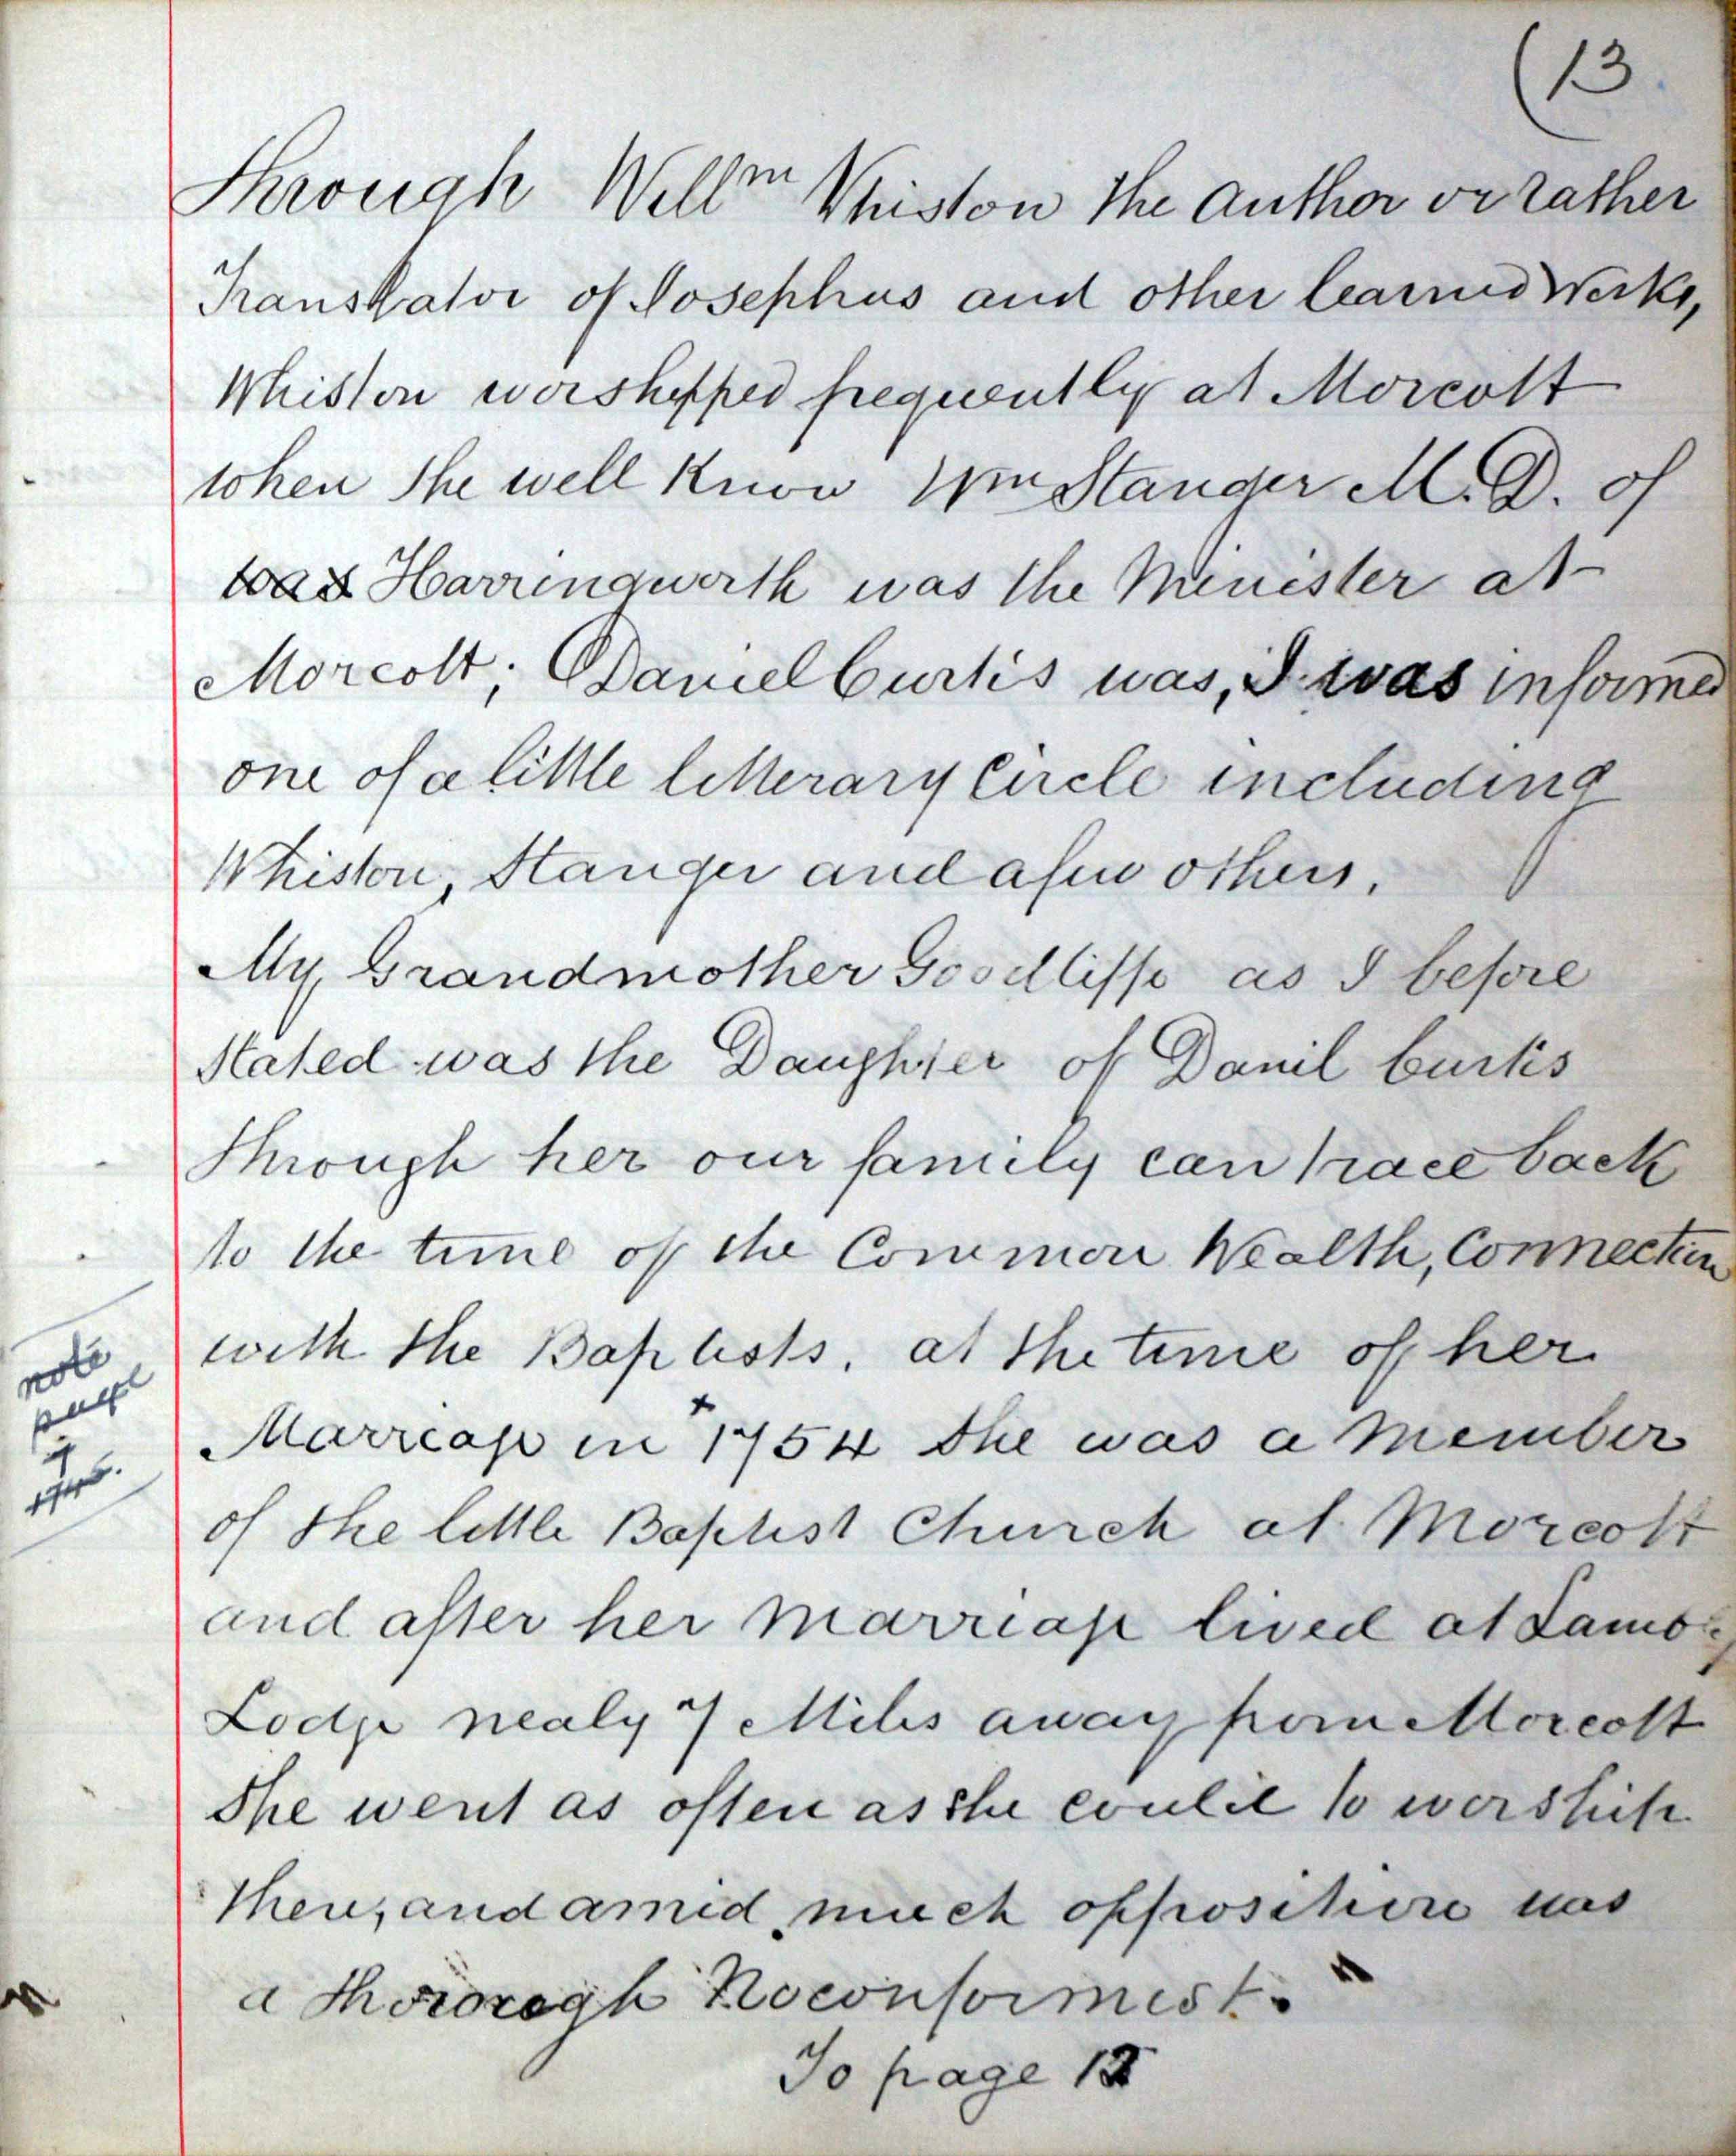 (13
Through Willm Whiston the Author or rather
Translator of Josephus and other learned Works,
Whiston worshipped frequently at Morcott
when the well know Wm Stanger M.D. of
was Harringworth was the Minister at
Morcott; Daniel Curtis was, I was informed
one of a little litterary Circle including
Whiston, Stanger and a few others.
My Grandmother Goodliffe as I before
Stated was the Daughter of Danil Curtis
through her our family can trace back
to the time of the Common Wealth, Connection
with the Baptists, at the time of her
note
page
Marriage in +1754 She was a Member
of the little Baptist Church at Morcott
and after her marriage lived at
Lodge nealy 7 Miles away from Morcott
She went as often as she could to worship
there, and amid much opposition was
a thorough Noconformist."
To page